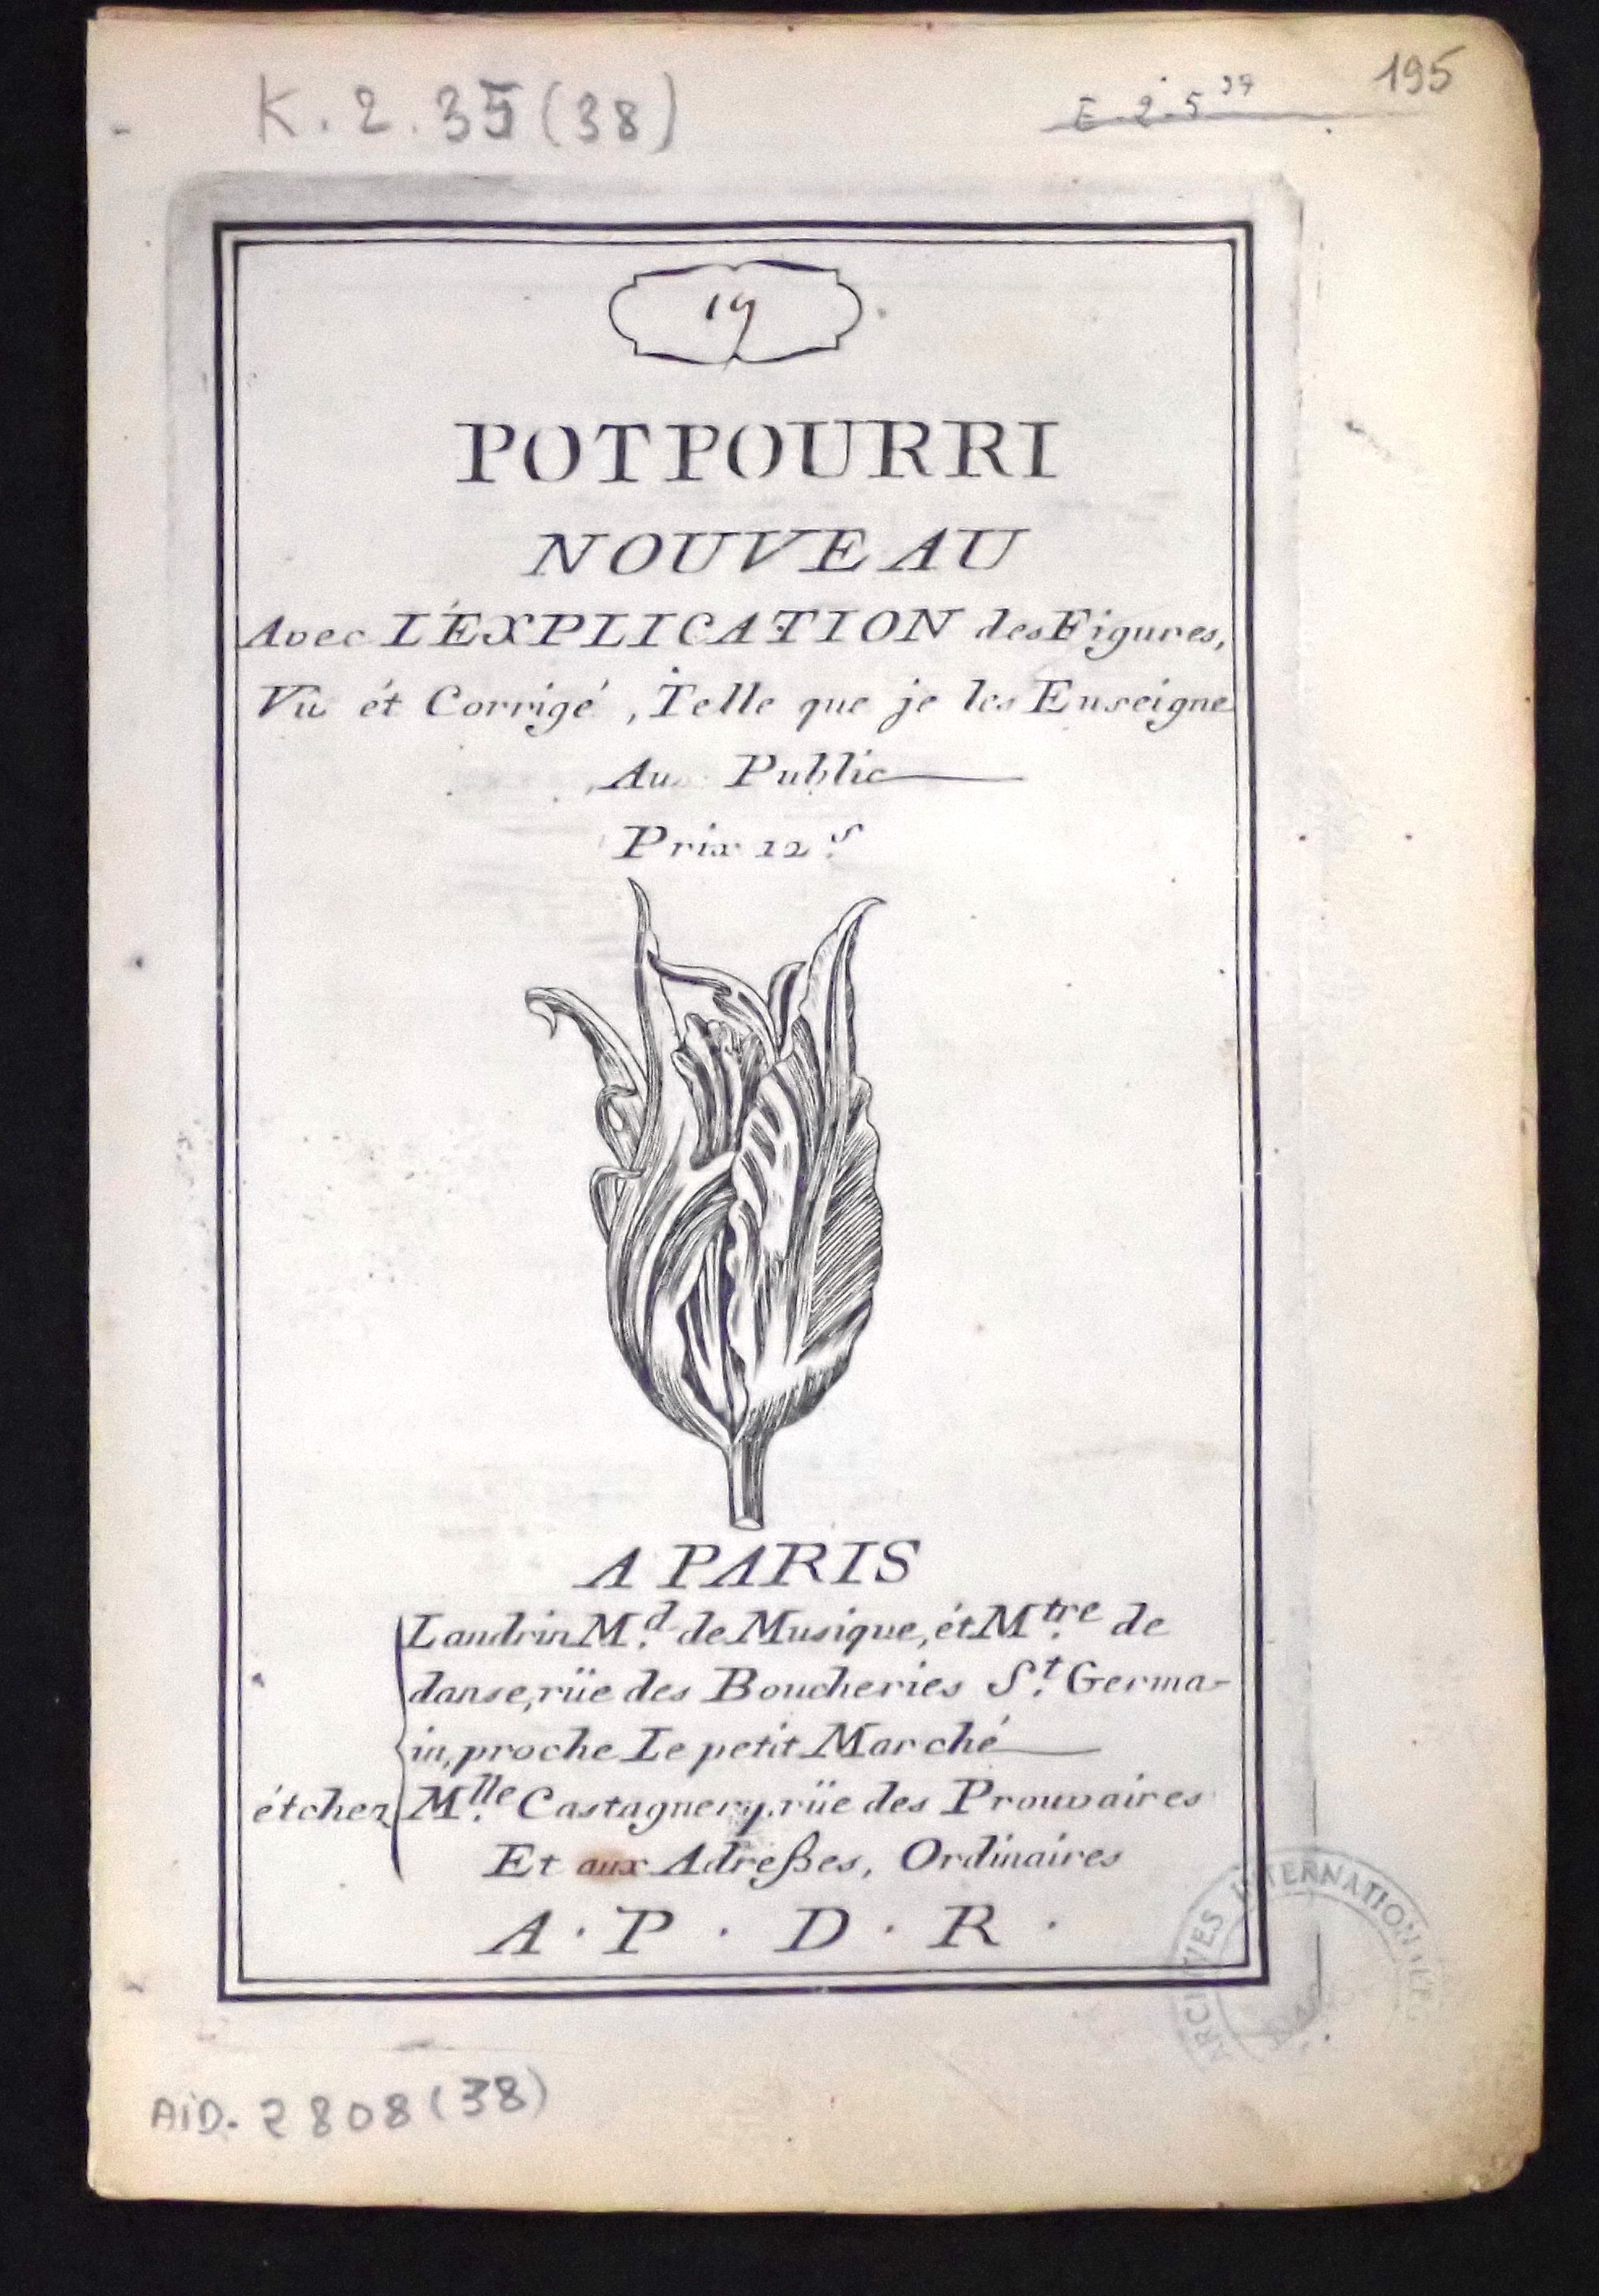 K. 2. 35 (38)
E. 2. 5 37
195
19
POTPOURRI
NOUVEAU
Avec L'ÉXPLICATION des Figures,
Vû ét Corrigé, Telle que je les Enseigne
Au Public
Prix 12 s
A PARIS
Landrin M.d de Musique, ét M.tre de
danse, rüe des Boucheries S.t Germa-
in, proche Le petit Marché
ét chez M.lle Castagnery, rüe des Prouvaires
Et aux Adreßes, Ordinaires
A. P. D. R.
ARCHIVES INTERNATIONALES
AID. 2808 (38)